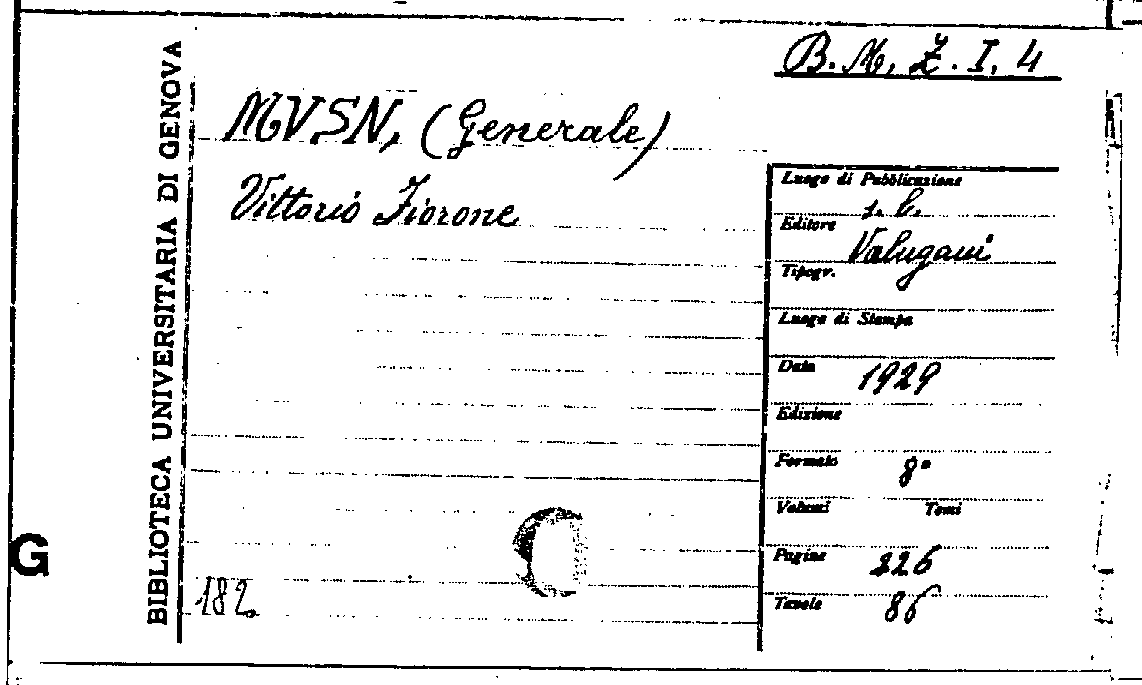 B.M. Z. I. 4
BIBLIOTECA UNIVERSITARIA DI GENOVA
MVSN, (Generale)
Vittorio Fiorone
Luogo di Pubblicazione
s. l.
Editore Valugani
Tipogr.
Luogo di Stampa
Data 1929
Edizione
Formato 8°
Volumi Tomi
Pagine 226
Tavole 86
G
182